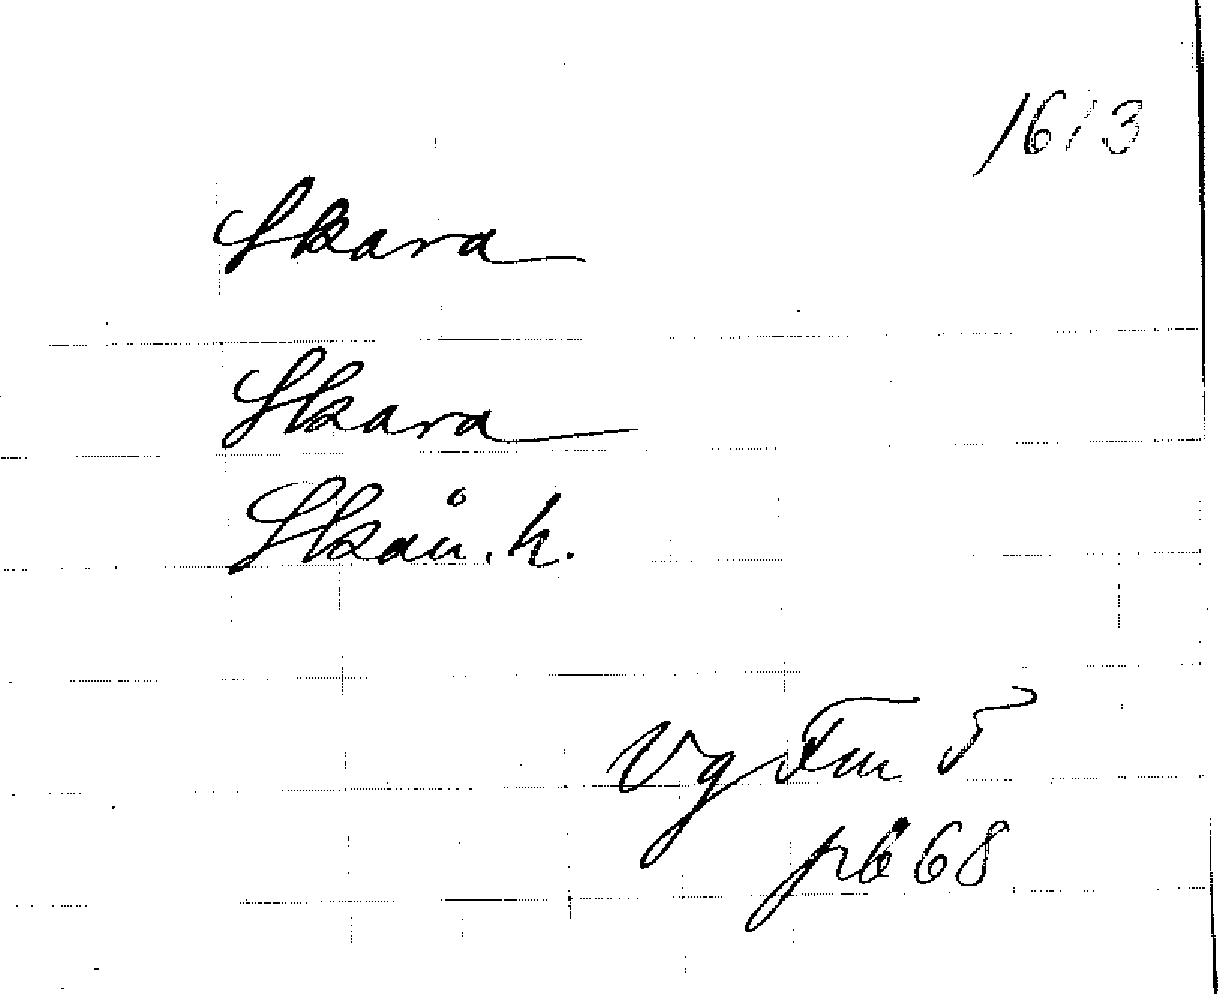 1613
Skara
Skara
Skån. h.
Vg Fm 5
pb 68